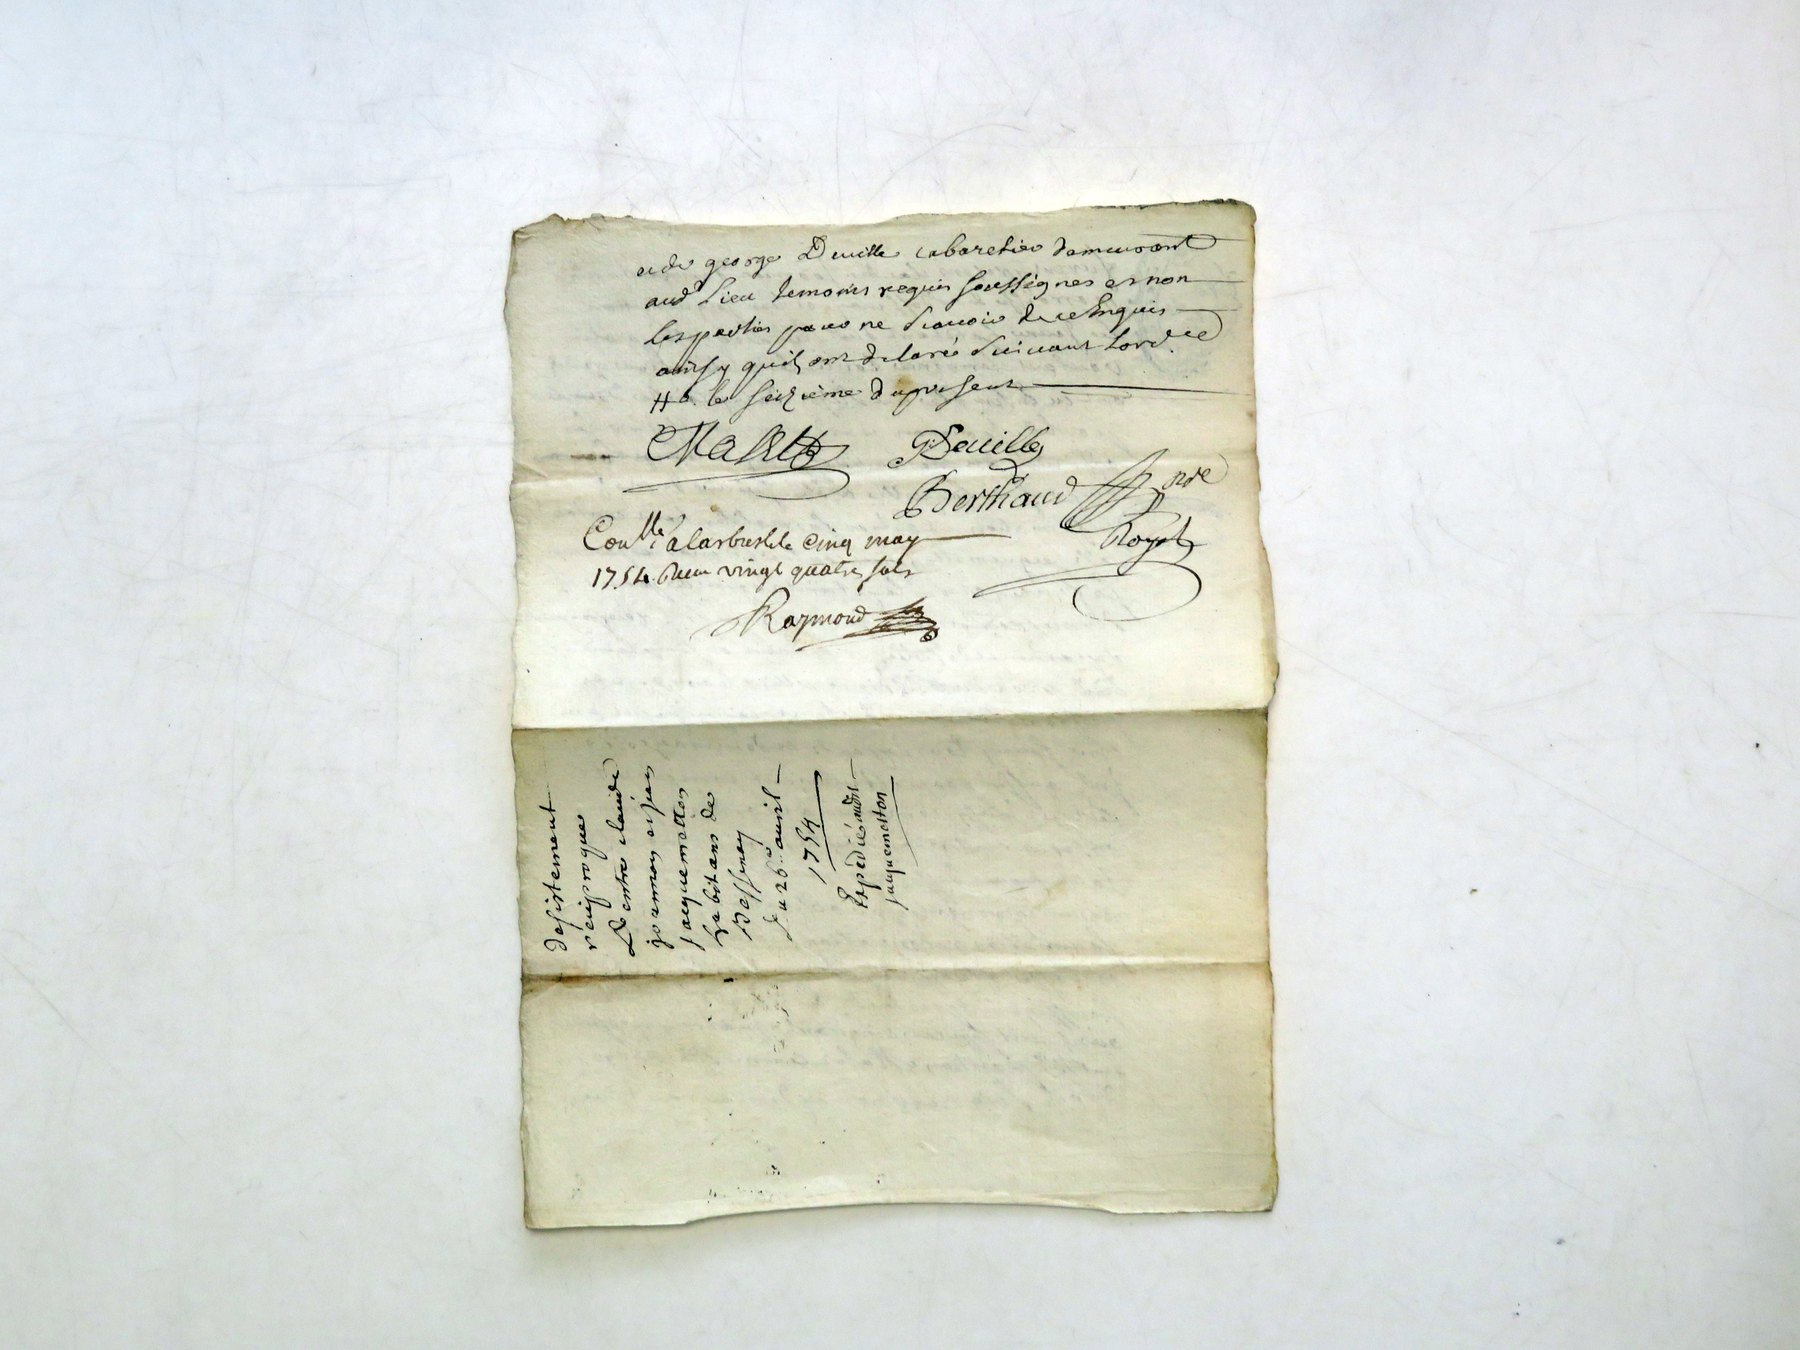 et de george Deville cabaretier demeurant
aud lieu temoins requis soussignes et non
les parties pour ne scavoir de ce Enquis
ainsy quils ont declaré suivant lord ce
le seizieme du present
GDeville
Berthaud
nore
Royal
Con lle alarbresle le cinq may
1754 Receu vingt quatre sols
Raymond
desistement
reciproque
De entre claude
et jean
Jacquemetton
habitans de
Bessenay
Du 26e avril
1754
Expedié audit
Jacquemetton